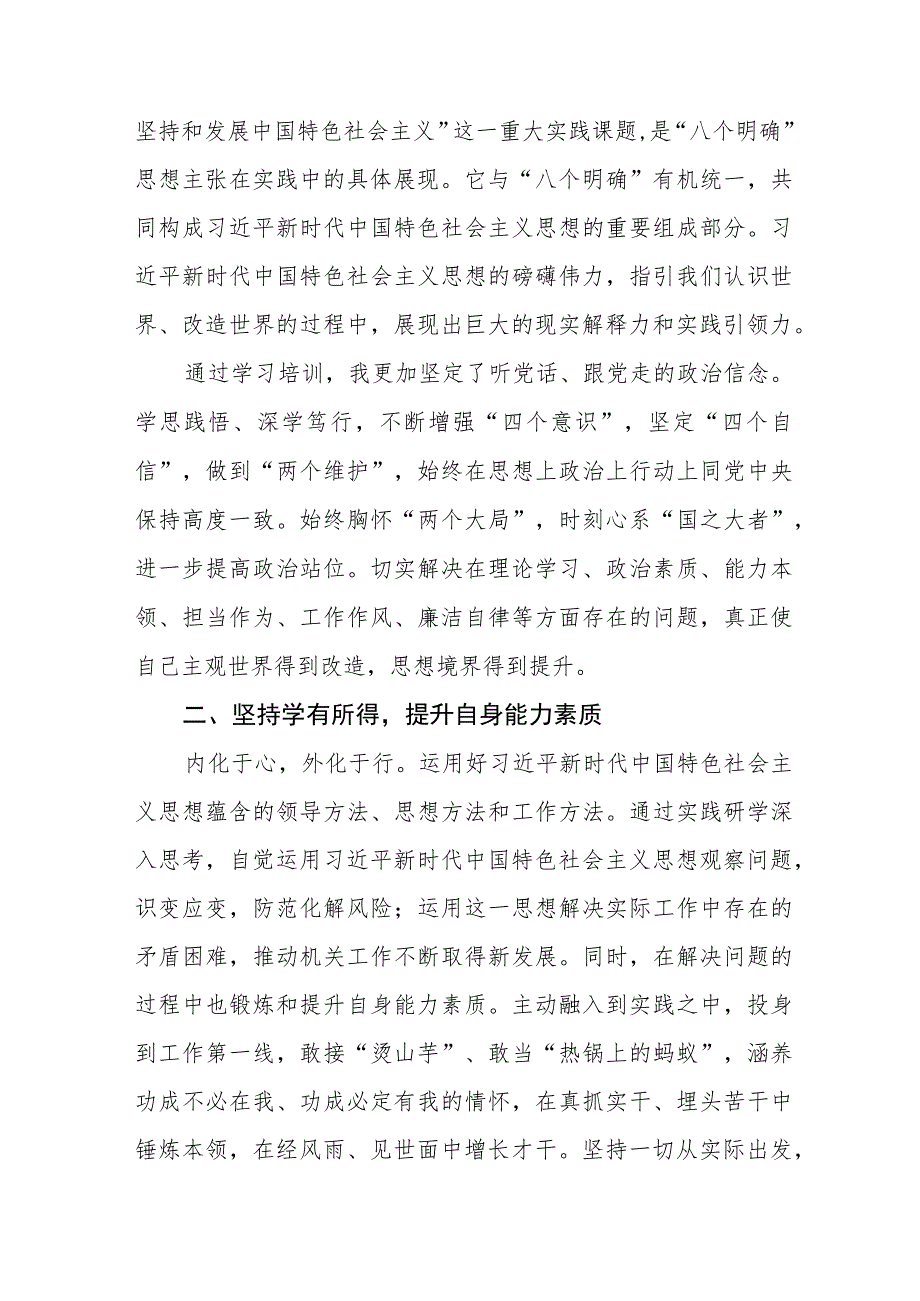 坚持和发展中国特色社会主义”这一重大实践课题,是“八个明确”
思想主张在实践中的具体展现。它与“八个明确”有机统一，共
同构成习近平新时代中国特色社会主义思想的重要组成部分。习
近平新时代中国特色社会主义思想的磅礴伟力，指引我们认识世
界、改造世界的过程中，展现出巨大的现实解释力和实践引领力。
通过学习培训，我更加坚定了听党话、跟党走的政治信念。
学思践悟、深学笃行，不断增强“四个意识”，坚定“四个自
信”，做到“两个维护”，始终在思想上政治上行动上同党中央
保持高度一致。始终胸怀“两个大局”，时刻心系“国之大者”，
进一步提高政治站位。切实解决在理论学习、政治素质、能力本
领、担当作为、工作作风、廉洁自律等方面存在的问题，真正使
自己主观世界得到改造，思想境界得到提升。
二、坚持学有所得，提升自身能力素质
内化于心，外化于行。运用好习近平新时代中国特色社会主
义思想蕴含的领导方法、思想方法和工作方法。通过实践研学深
入思考，自觉运用习近平新时代中国特色社会主义思想观察问题，
识变应变，防范化解风险；运用这一思想解决实际工作中存在的
矛盾困难，推动机关工作不断取得新发展。同时，在解决问题的
过程中也锻炼和提升自身能力素质。主动融入到实践之中，投身
到工作第一线，敢接“烫山芋”、敢当“热锅上的蚂蚁”，涵养
功成不必在我、功成必定有我的情怀，在真抓实干、埋头苦干中
锤炼本领，在经风雨、见世面中增长才干。坚持一切从实际出发，